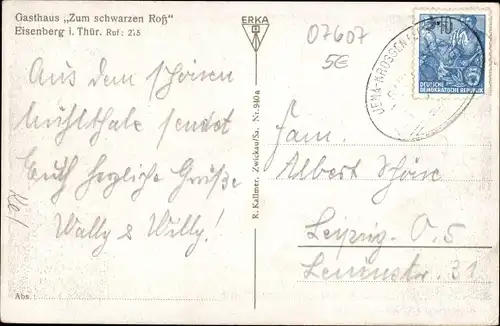 Gasthaus „Zum schwarzen Roß"
Eisenberg i. Thür. Ruf: 215
Aus dem schönen
Mühlthale sendet
Euch herzliche Grüße
Wally & Willy!
Abs.:
ERKA
R. Kallmer, Zwickau/Sa. Nr. 940a
07607
5€
10
DEUTSCHE
DEMOKRATISCHE REPUBLIK
JENA-KROSSEN
Fam.
Albert Schöne
Leipzig O. 5
Leninstr. 31